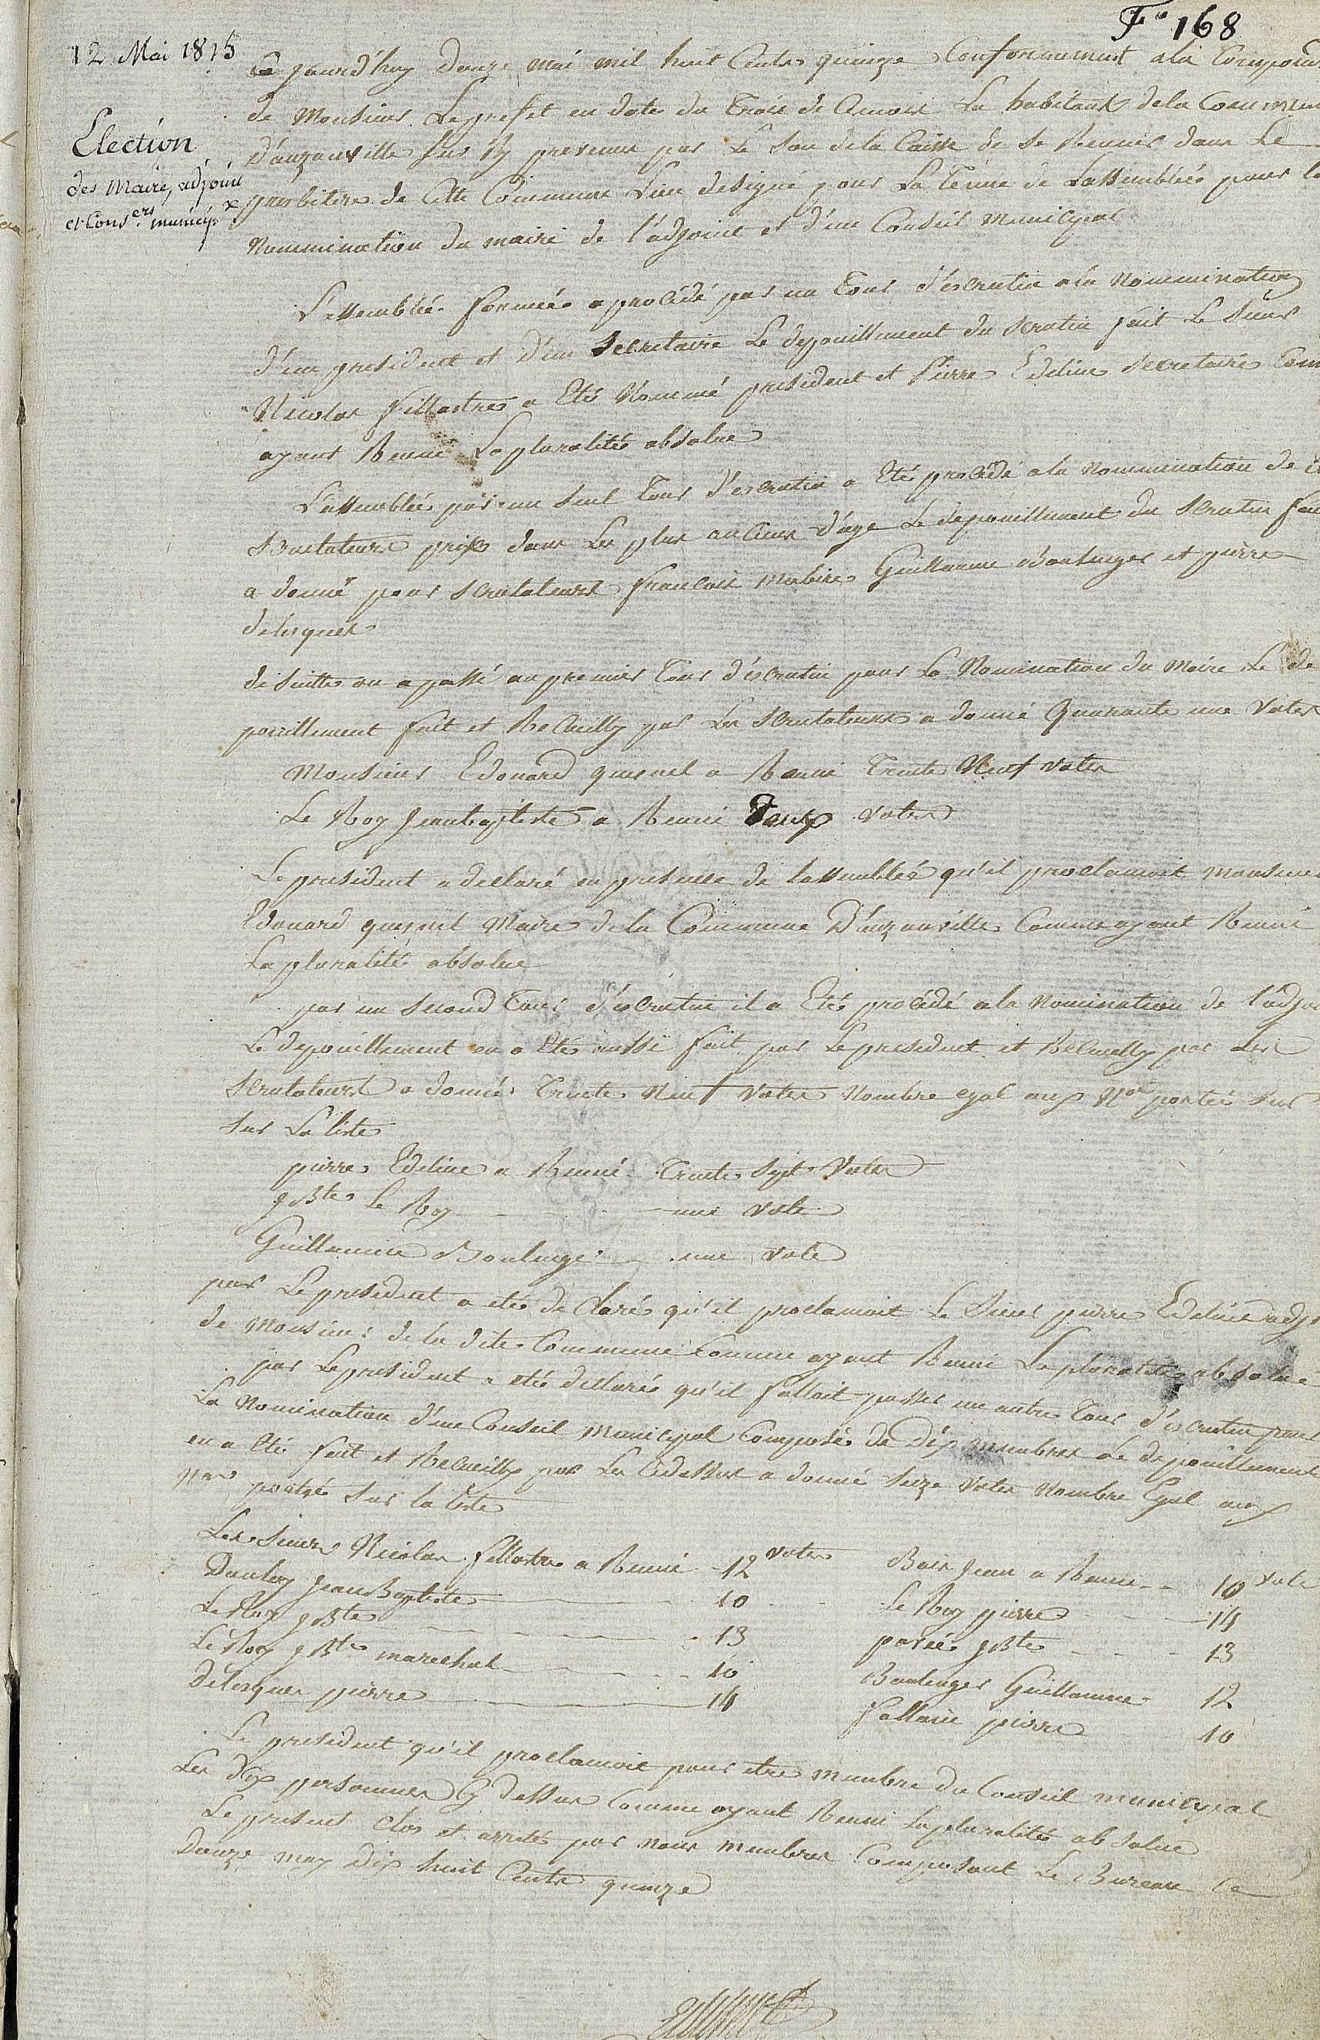 F° 168
12 Mai 1815
Election
des Maire, adjoint
et Cons.ers municip.x
Ce jourd'huy Douze mai mil huit Cents quinze Conformement a la
de Monsieur Le prefet en date du Trois de Ce mois La habitants de la Commune
D'auzouville prevenus par Le Son de la Caisse de Se Reunir dans Le
presbitere de Cette Commune Lieu designé pour La Tenue de Lassemblée pour la
Nommination du maire de l'adjoint et d'un Conseil Municipal
L'assemblée formée a procédé par un Tour d'escrutin a la Nommination
d'un president et d'un Secretaire Le depouillement du scrutin fait Le Sieur
Nicolas fillastre a Eté Nommé president et Pierre Edeline Secretaire
ayant Reuni La pluralité absolue
L'assemblée par un Seul Tour d'escrutin a Eté procédé a la Nommination de
Scrutateurs pris dans Les plus anciens d'age Le depouillement du Scrutin
a donné pour Scrutateurs francois Guillaume Boulenger et pierre
delesques
de Suitte on a passé au premier Tour d'escrutin pour La Nomination du Maire Le de
pouillement fait et Recuilly par Les Scrutateurs a donné Quarante une Votes
Monsieur Edouard quesnel a Reuni Trente Neuf votes
Le Roy Jeanbaptiste a Reuni Deux votes
Le president a declaré en presence de lassemblée qu'il proclamoit monsieur
Edouard quesnel Maire de la Commune D'auzouville Comme ayant Reuni
La pluralité absolue
par un Second Tour d'escrutin il a Eté procédé a la Nomination de l'adjoi
Le depouillement en a Eté aussi fait par Le president et Recuelly par Les
Scrutateurs a donné Trente Neuf Votes Nombre egal aux portés Sur
Sur La liste
pierre Edeline a Reuni Trente Sept Votes
J Bte Le Roy une vote
Guillaume Boulenger une vote
par Le president a eté de Claré qu'il proclamoit Le Sieur pierre Edeline
de Monsieur de la dite Commune Comme ayant Reuni La pluralité absolue
par Le president a eté declaré qu'il falloit passer un autre Tour d'escrutin pour
La Nomination d'un Conseil Municipal Composé de Dix membres Le depouillement
en a Eté fait et Recuilly par Les Cidessus a donné Seize Votes Nombre Egal aux
portés Sur la liste
Les Sieurs Nicolas fillastre a Reuni 12 votes
Jean Baptiste 10
Le Roy J Bte 13
Le Roy J Bte marechal 10
delesques pierre 14
Jean a Reuni 10 vote
Le Roy pierre 14
J Bte 13
Boulenger Guillaume 12
pierre 10
Le president qu'il proclamoit pour etre membre du Conseil municipal
Les dix personnes Cy dessus Comme ayant Reuni La pluralité absolue
Le present Clos et arreté par nous membres Composant Le Bureau Le
Douze may Dix huit Cents quinze